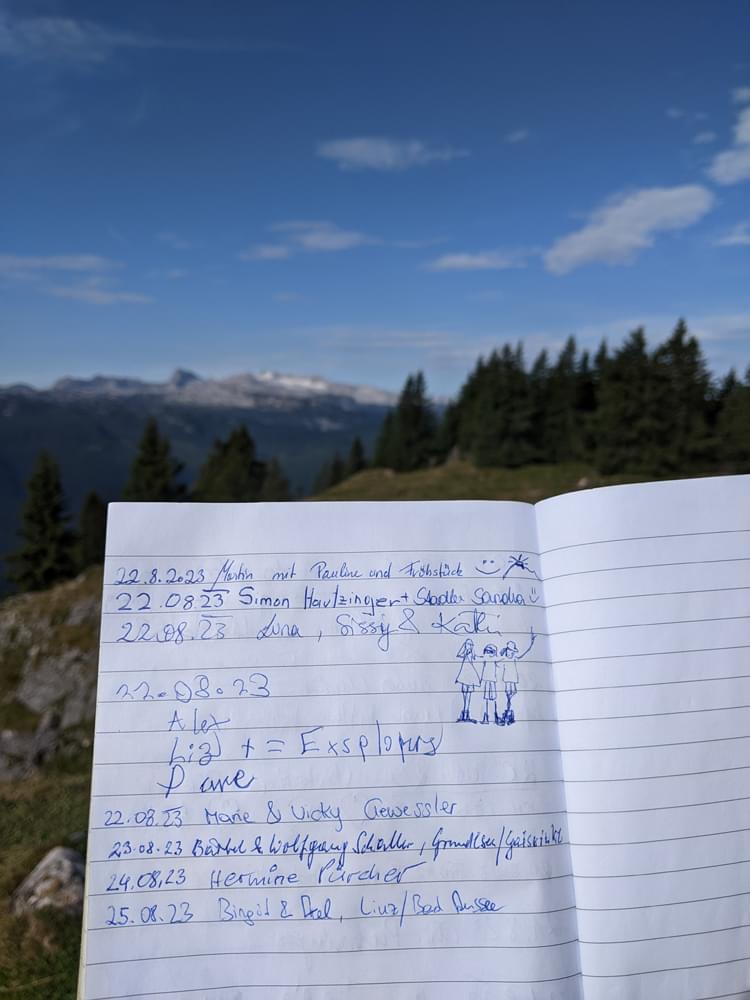 22.8.2023 Martin mit Pauline und Frühstück
22.08.23 Simon Hartzinger + Stadler Sandra
22.08.23 Luna, Sissy & Kathi
22.08.23
Alex
Liz + = Exsplorers
Dave
22.08.23 Marie & Vicky Gewessler
23.08.23 Bärbel & Wolfgang Schaller, Grundlsee/
24.08.23 Hermine Pürcher
25.08.23 Birgit & Axel, Linz/Bad Aussee